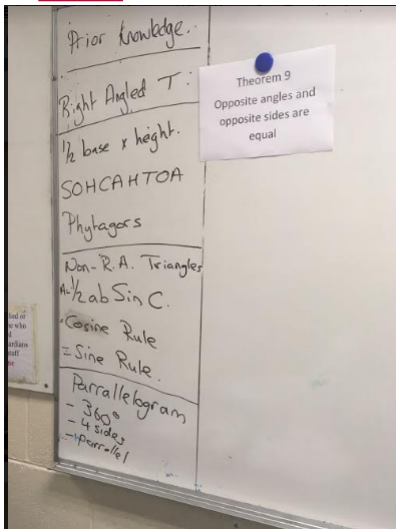 Prior Knowledge.
Right Angled T:
1/2 base x height.
SOHCAHTOA
Phytagors
Non-R.A. Triangles
A=1/2 ab Sin C.
-Cosine Rule
=Sine Rule.
Parrallelogram
- 360°
- 4 sides
- parrallel
Theorem 9
Opposite angles and
opposite sides are
equal